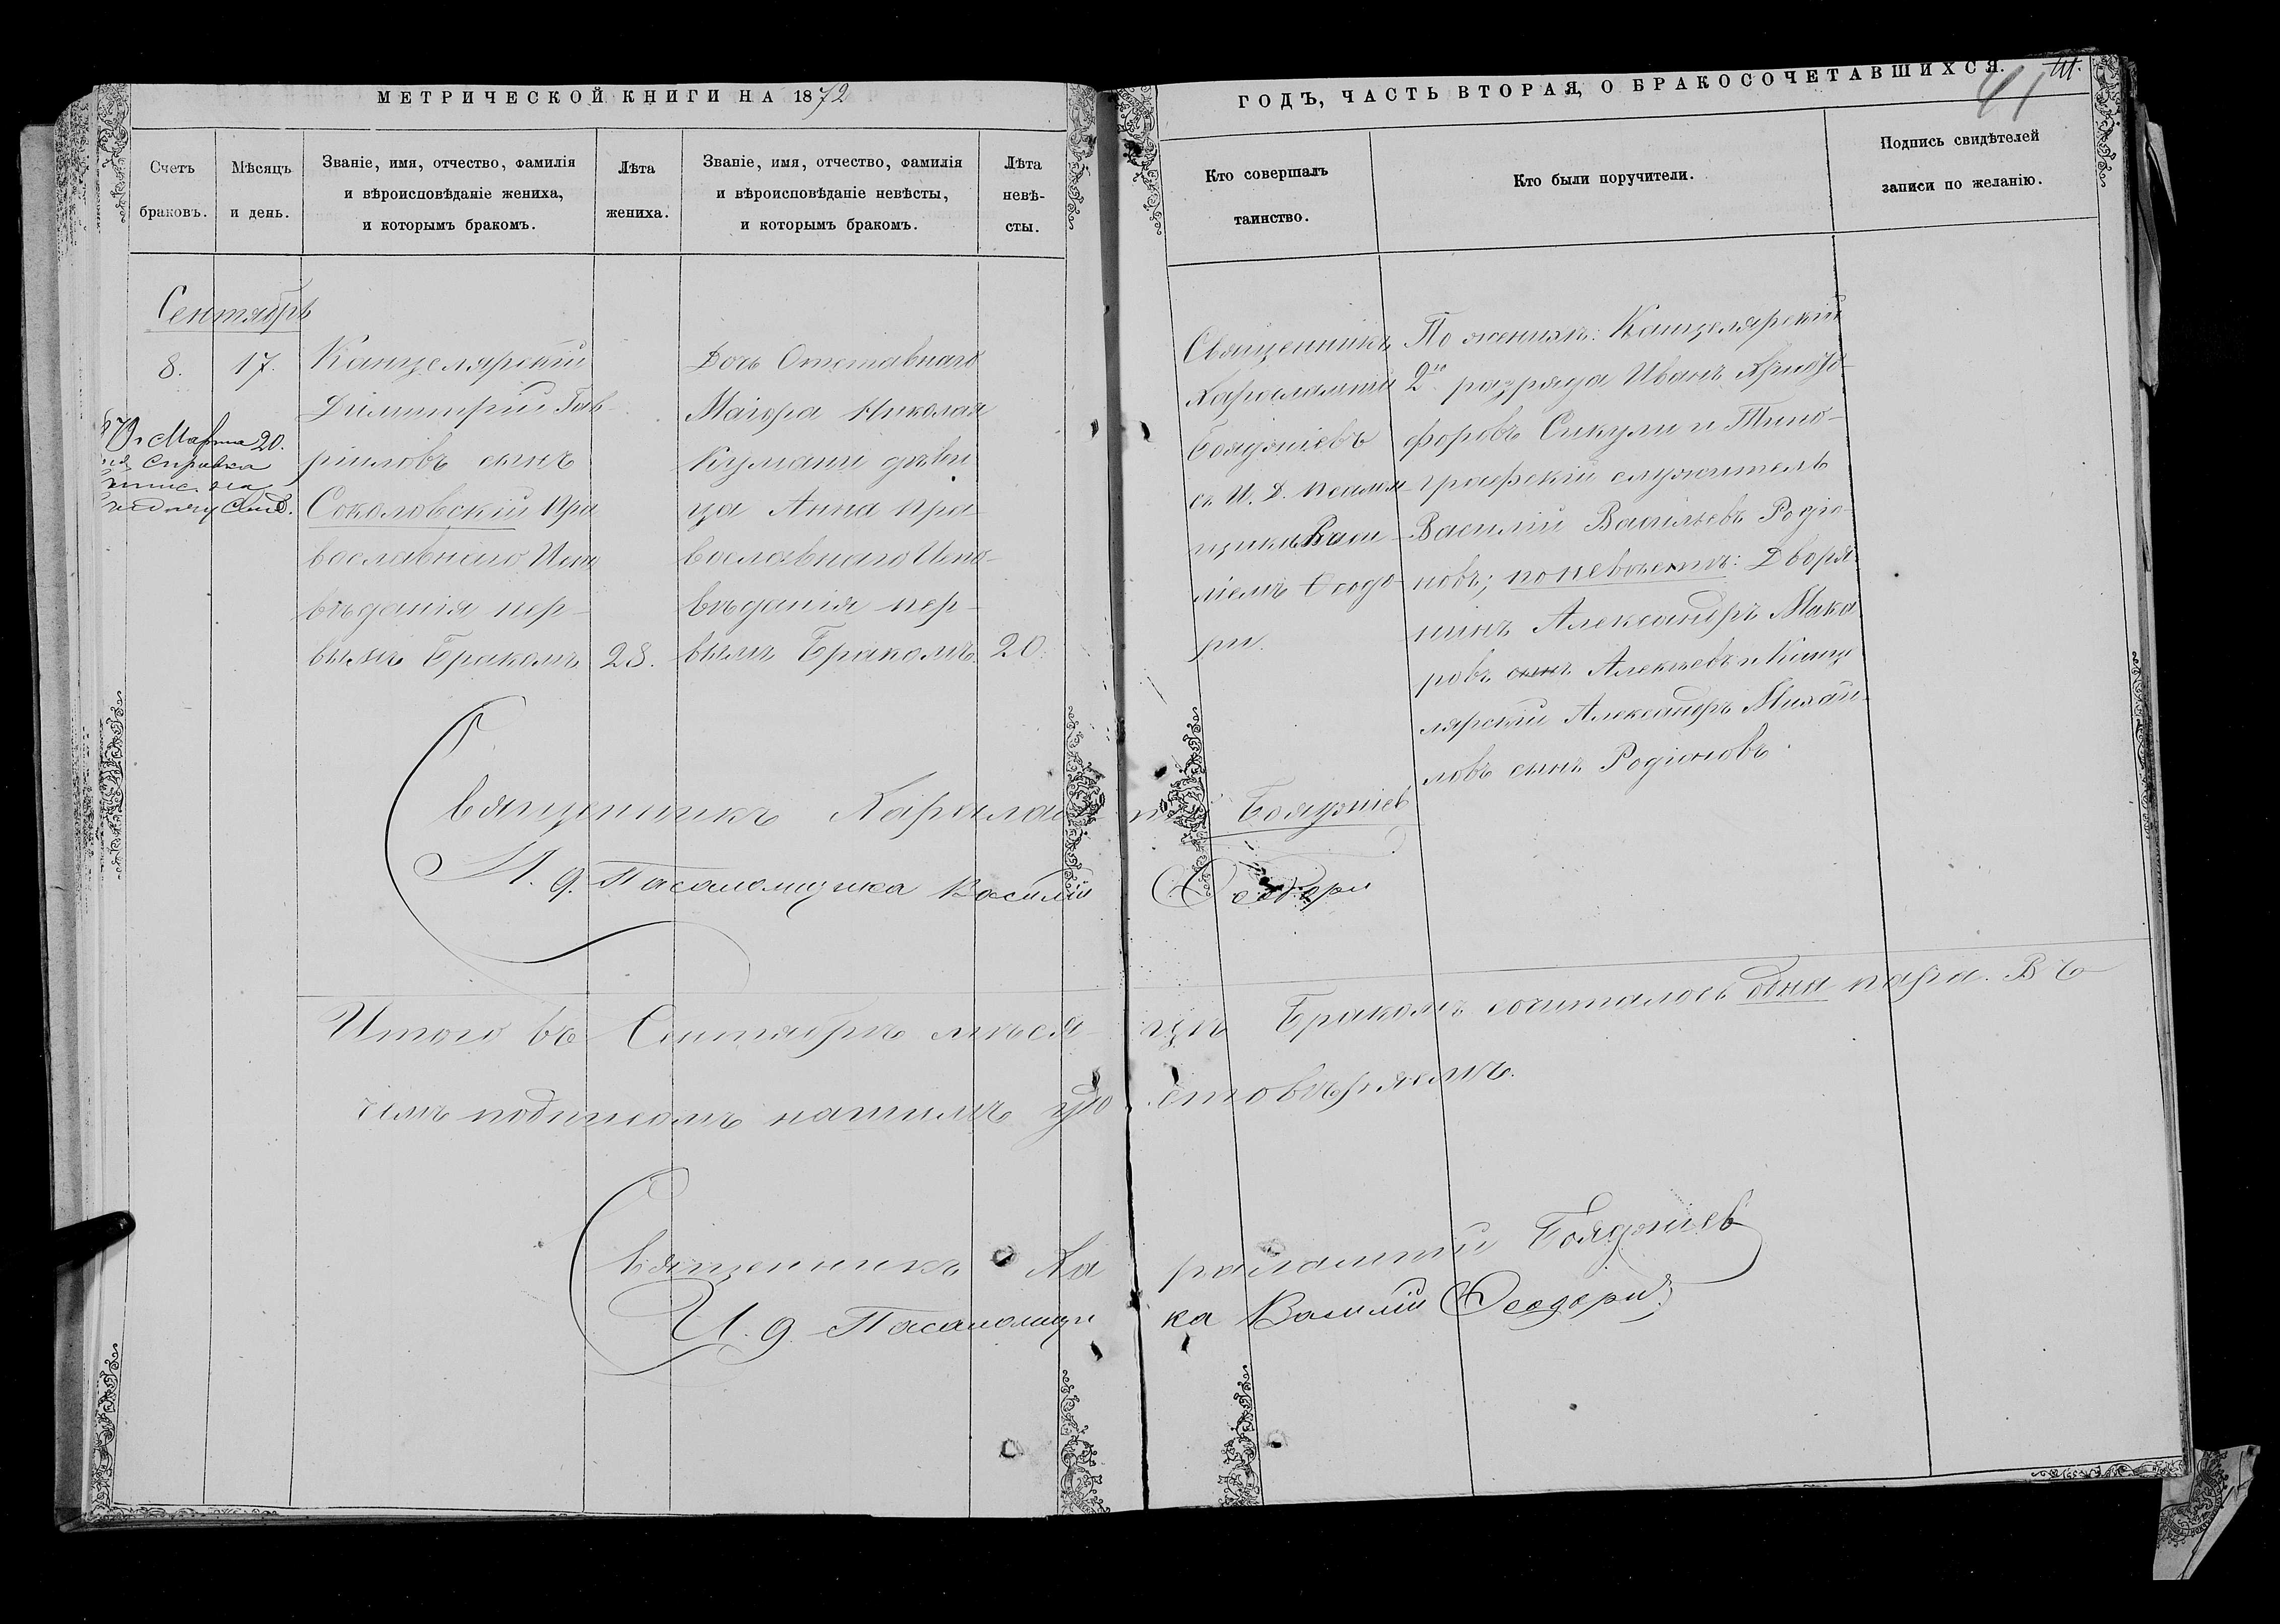 МЕТРИЧЕСКОЙ КНИГИ НА 1872
ГОДЪ, ЧАСТЬ ВТОРАЯ, О БРАКОСОЧЕТАВШИХСЯ.
41
Счетъ
браковъ.
Мѣсяцъ
и день.
Званіе, имя, отчество, фамилія
и вѣроисповѣданіе жениха,
и которымъ бракомъ.
Лѣта
жениха.
Званіе, имя, отчество, фамилія
и вѣроисповѣданіе невѣсты,
и которымъ бракомъ.
Лѣта
невѣ-
сты.
Кто совершалъ
таинство.
Кто были поручители.
Подпись свидѣтелей
записи по желанію.
Сентябрь
8.
17.
Марта 20.
справка
Канцелярскій
Димитрій Гав-
ріиловъ сынъ
Соколовскій Пра
вославнаго Испо
вѣданія пер-
вымъ Бракомъ
28.
Дочь Отставнаго
Маіора Николая
Кумани дѣви
ца Анна пра-
вославнаго Испо-
вѣданія пер-
вымъ Бракомъ
20.
Священникъ
Харалампій
Бояджіевъ
съ И. Д. псалом
щика Васи-
ліемъ Ѳеодо-
ри.
По женихѣ: Канцелярскій
2го разряда Иванъ Христо-
форовъ Сикули и Типо-
графскій служитель
Василій Васильевъ Родіо-
новъ; по невѣстѣ: Дворя-
нинъ Александръ Мака
ровъ сынъ Алексѣевъ и Канце
лярскій Александръ Михаи-
ловъ сынъ Родіоновъ.
Священникъ Харалампій Бояджіев
И. д. Псаломщика Василій Ѳеодори
Итого въ Сентябрѣ мѣсяцѣ Бракомъ сочиталось одна пара. Въ
чемъ подписомъ нашимъ удостовѣряемъ.
Священникъ Харалампій Бояджіев
И. д. Псаломщика Василій Ѳеодори